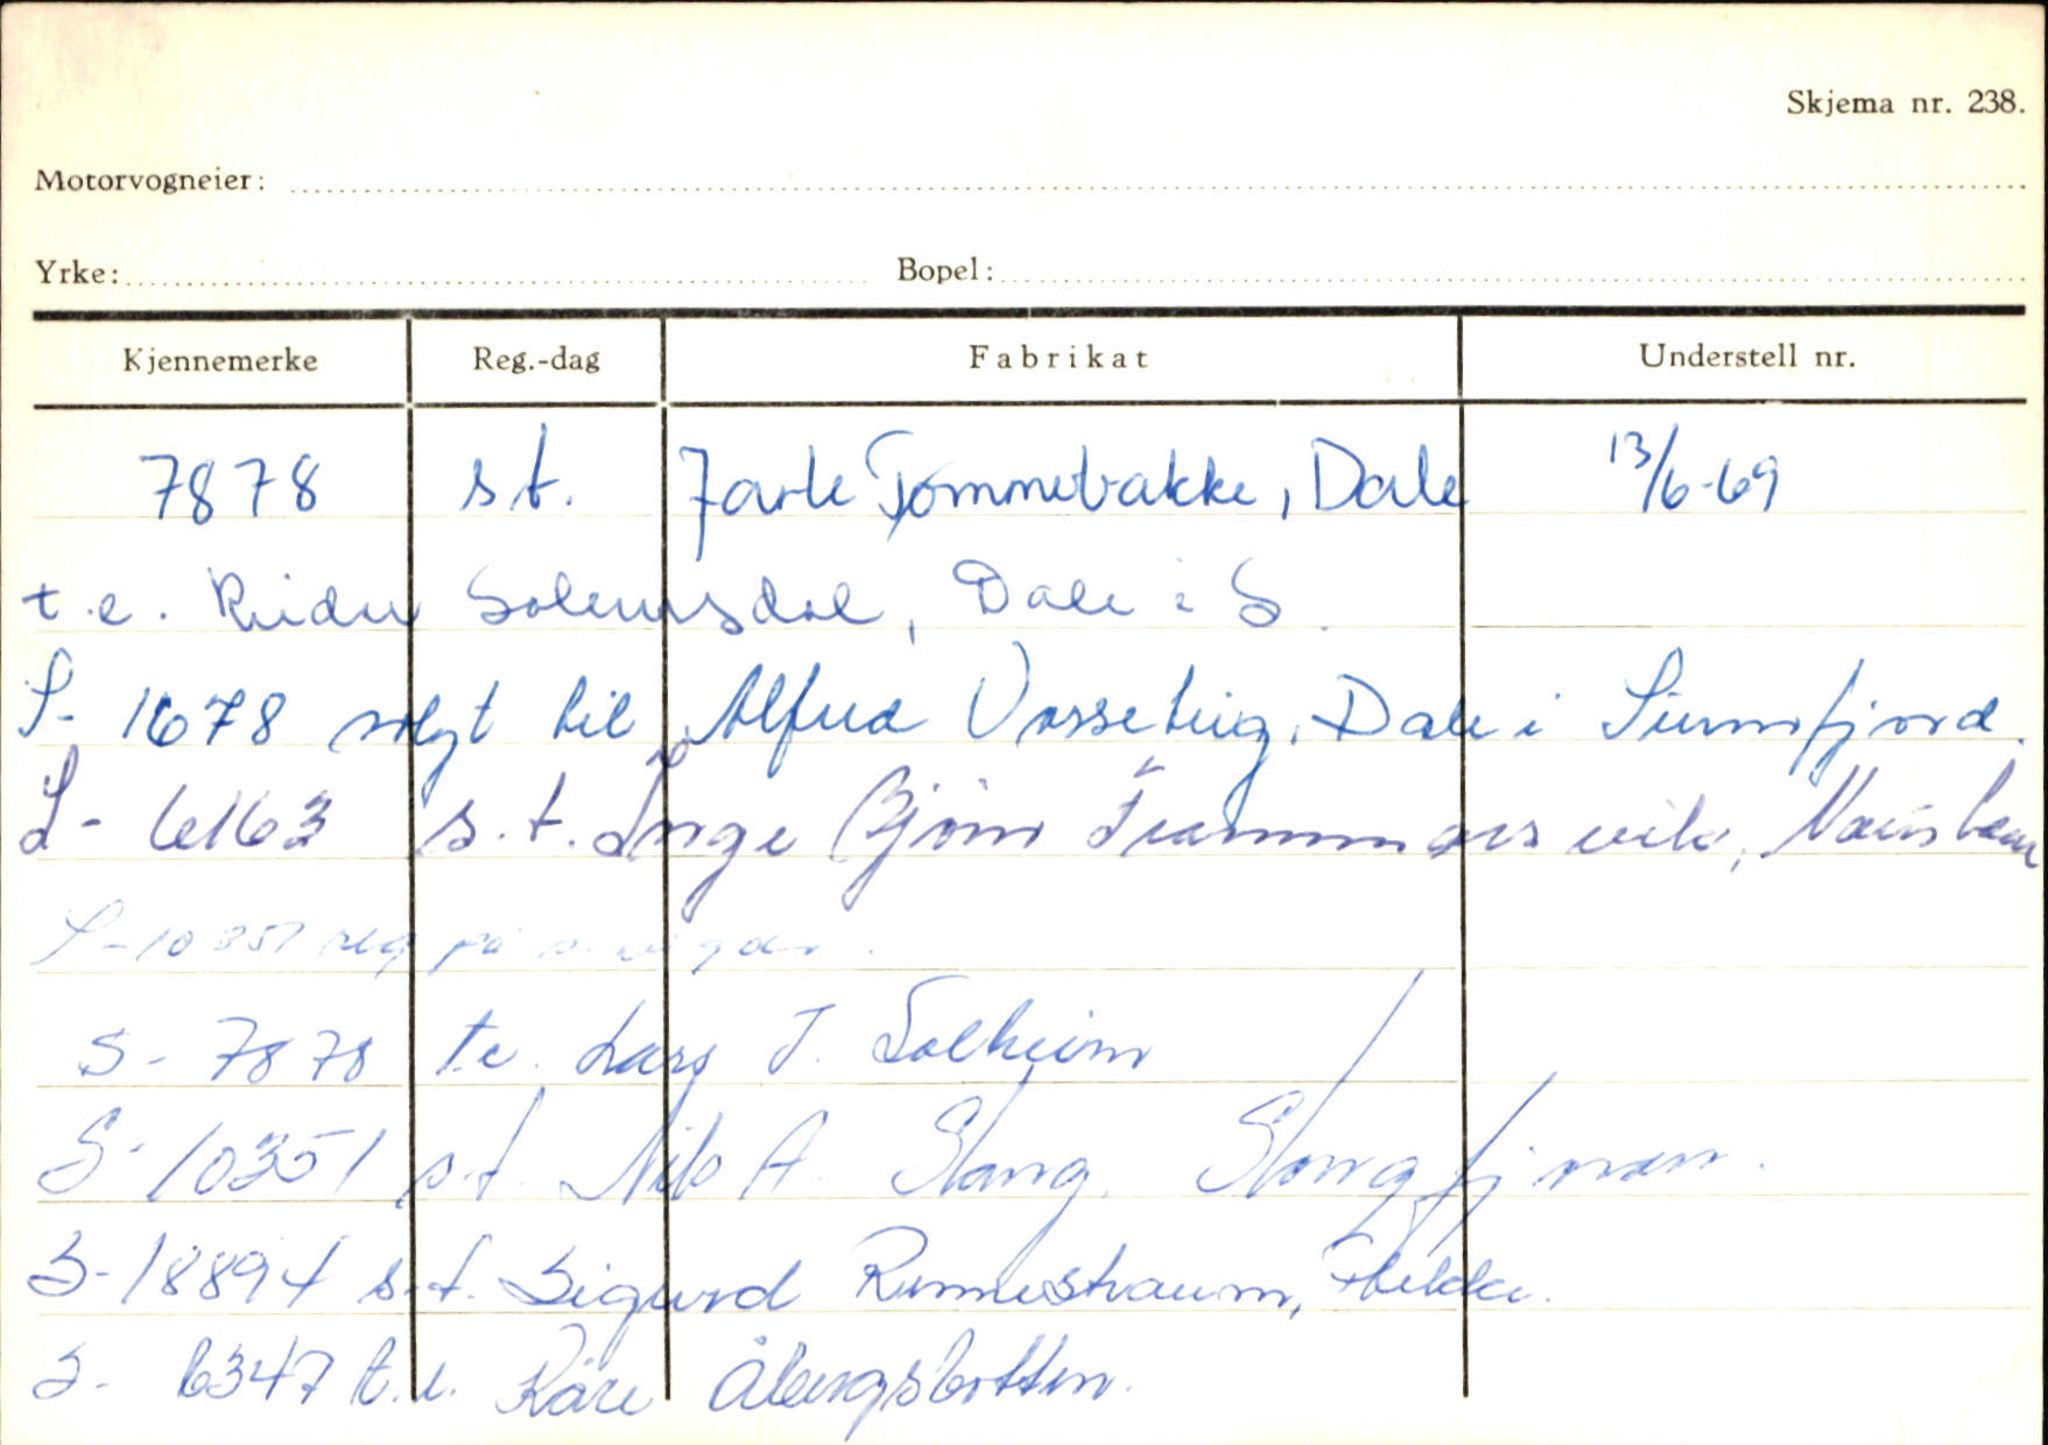 Skjema nr. 238.
Motorvogneier:
Yrke: Bopel:
Kjennemerke Reg.-dag Fabrikat Understell nr.
7878 s.t. Jarle Tømmebakke, Dale 13/6-69
t.e. Reidar Solemsdal, Dale i S.
S- 1678 solgt til Alfred Vassebig, Dale i Sunnfjord.
S- 6163 s.t. Inge Bjørn
S-10351 reg på
S- 7878 t.e. Lars J. Solheim
S- 10351 s.t. Nils A. Stang, Stongfjorden.
S-18894 s.t. Sigurd Rinnestraum, Flekke.
S- 6347 t.e. Kåre Åbergsbotten.